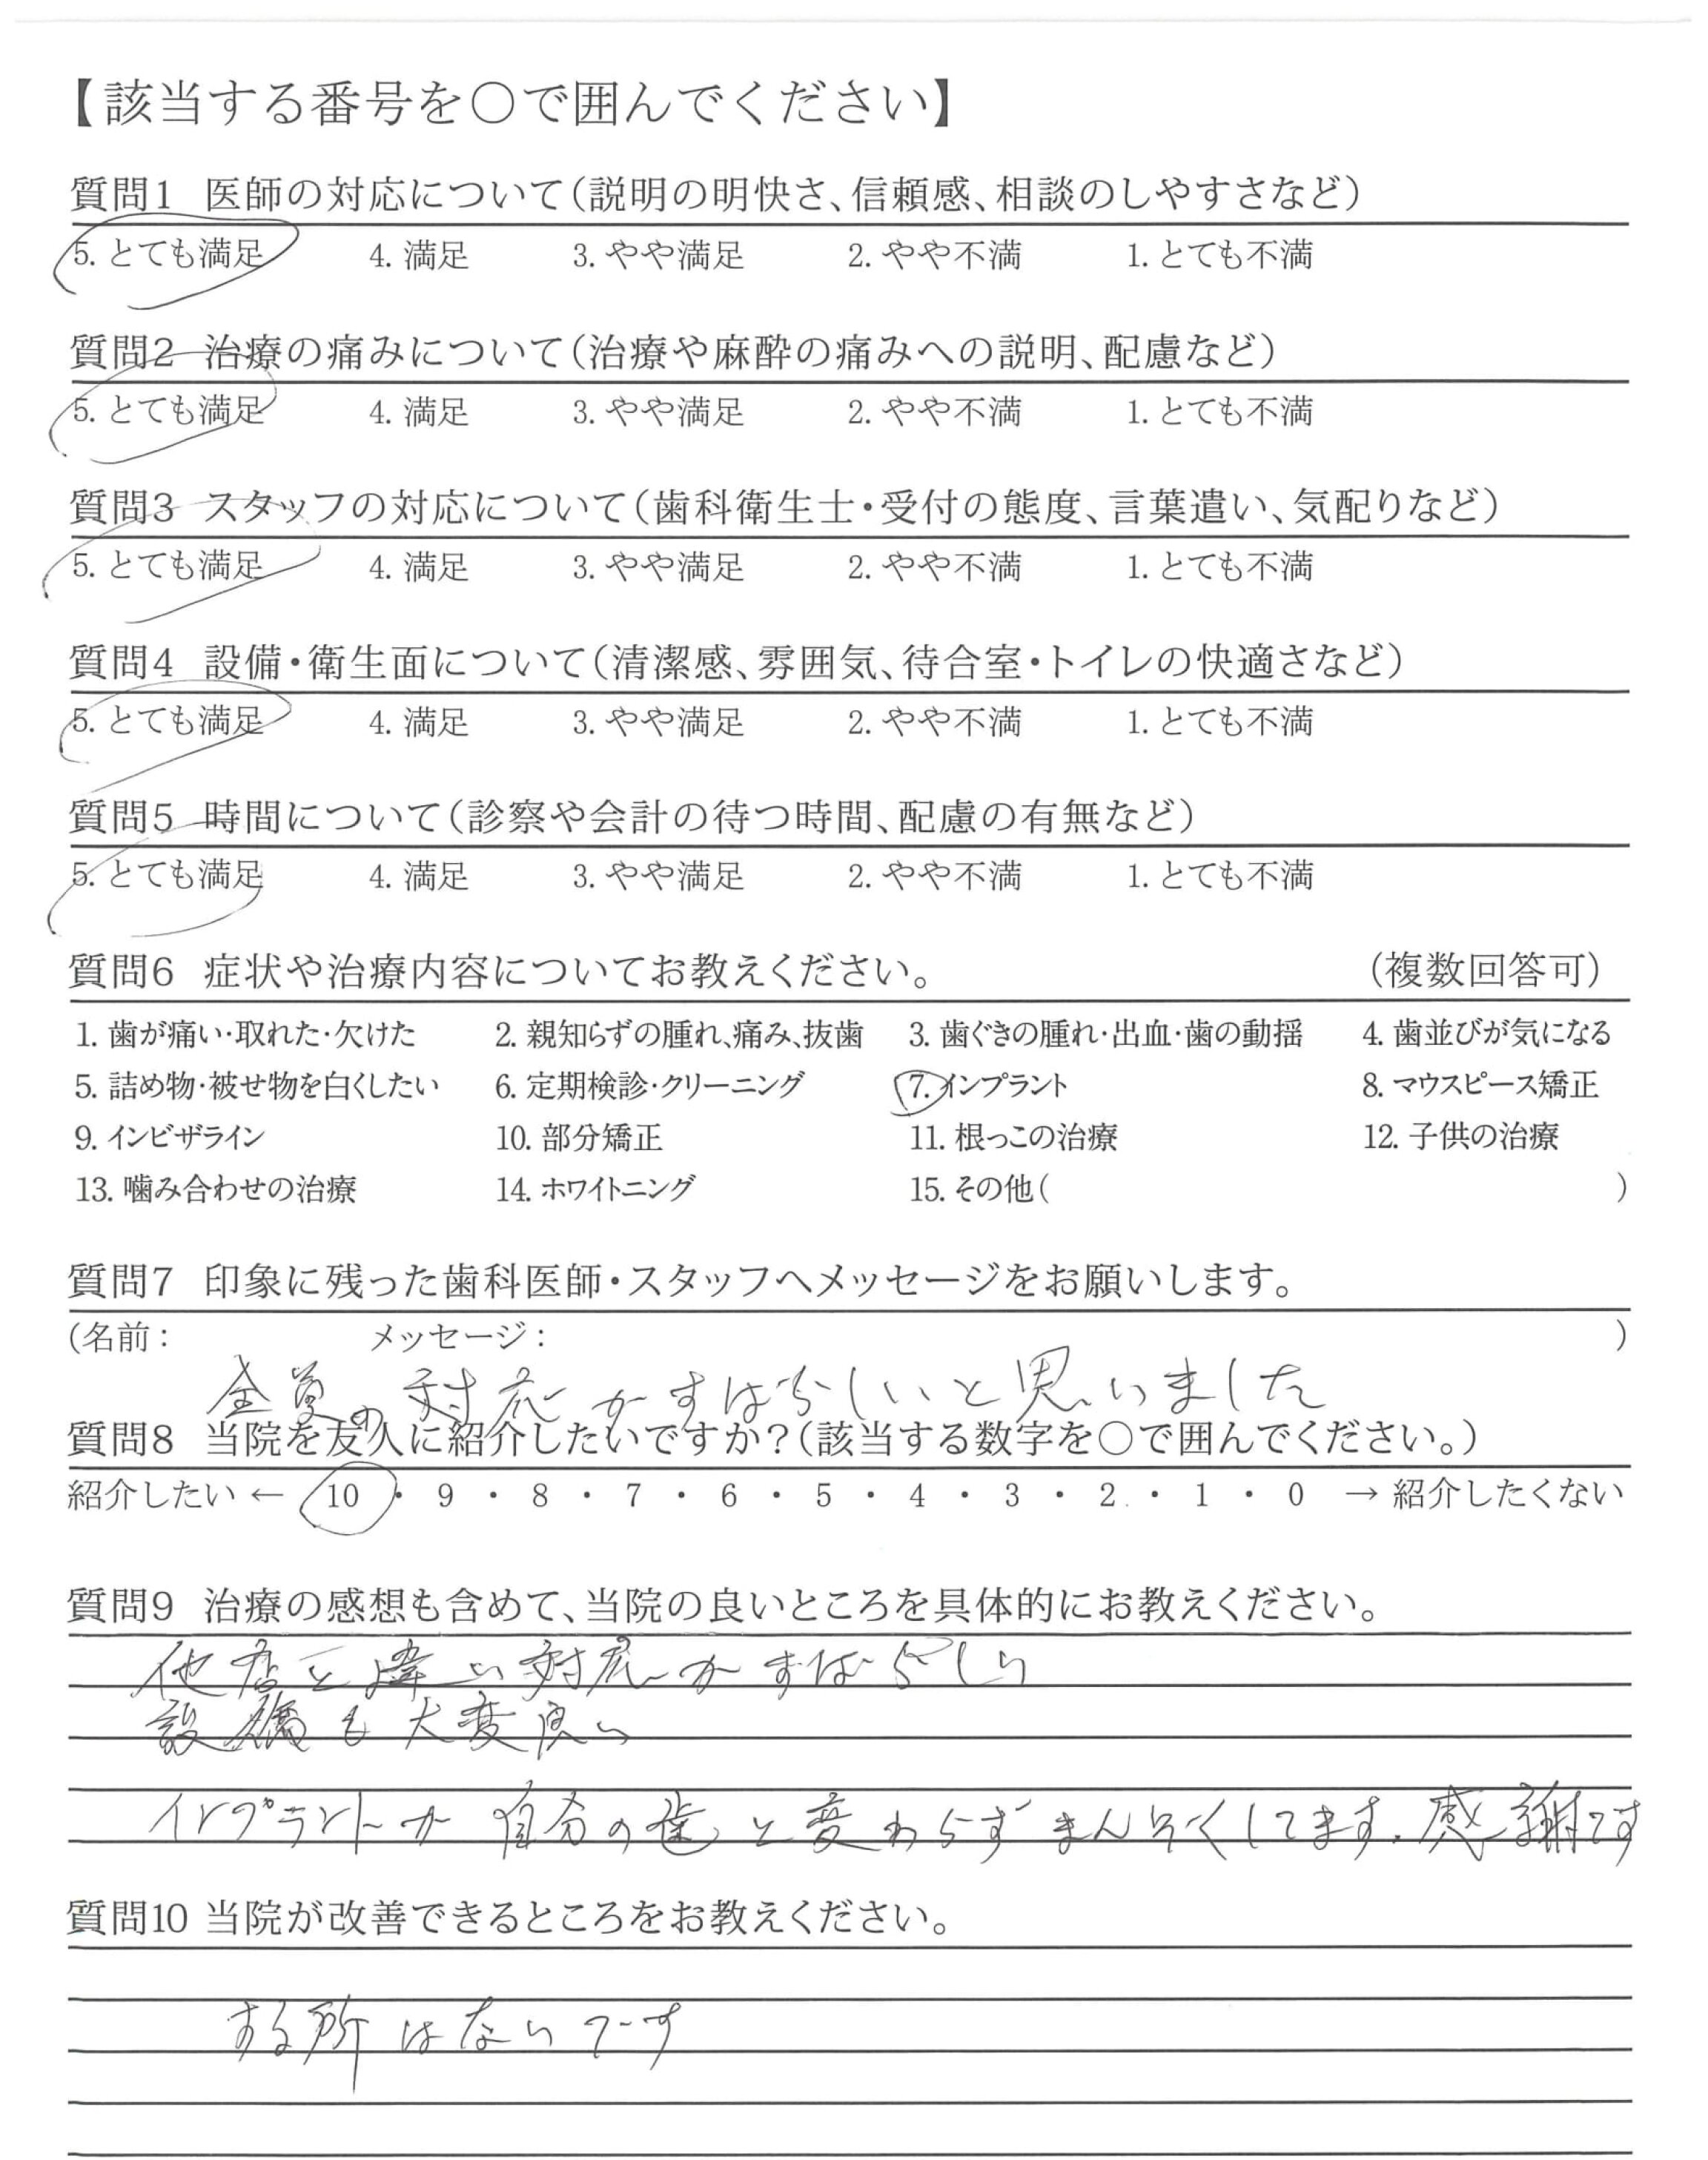 【該当する番号を〇で囲んでください】
質問1 医師の対応について（説明の明快さ、信頼感、相談のしやすさなど）
5. とても満足 4. 満足 3. やや満足 2. やや不満 1. とても不満
質問2 治療の痛みについて（治療や麻酔の痛みへの説明、配慮など）
5. とても満足 4. 満足 3. やや満足 2. やや不満 1. とても不満
質問3 スタッフの対応について（歯科衛生士・受付の態度、言葉遣い、気配りなど）
5. とても満足 4. 満足 3. やや満足 2. やや不満 1. とても不満
質問4 設備・衛生面について（清潔感、雰囲気、待合室・トイレの快適さなど）
5. とても満足 4. 満足 3. やや満足 2. やや不満 1. とても不満
質問5 時間について（診察や会計の待つ時間、配慮の有無など）
5. とても満足 4. 満足 3. やや満足 2. やや不満 1. とても不満
質問6 症状や治療内容についてお教えください。 （複数回答可）
1. 歯が痛い・取れた・欠けた 2. 親知らずの腫れ、痛み、抜歯 3. 歯ぐきの腫れ・出血・歯の動揺 4. 歯並びが気になる
5. 詰め物・被せ物を白くしたい 6. 定期検診・クリーニング 7. インプラント 8. マウスピース矯正
9. インビザライン 10. 部分矯正 11. 根っこの治療 12. 子供の治療
13. 噛み合わせの治療 14. ホワイトニング 15. その他（ ）
質問7 印象に残った歯科医師・スタッフへメッセージをお願いします。
（名前： メッセージ： ）
全員の対応がすばらしいと思いました
質問8 当院を友人に紹介したいですか？（該当する数字を〇で囲んでください。）
紹介したい ← 10 ・ 9 ・ 8 ・ 7 ・ 6 ・ 5 ・ 4 ・ 3 ・ 2 ・ 1 ・ 0 → 紹介したくない
質問9 治療の感想も含めて、当院の良いところを具体的にお教えください。
他店と違い対応がすばらしい
設備も大変良い
インプラントが自分の歯と変わらずまんぞくしてます。感謝です
質問10 当院が改善できるところをお教えください。
する所はないです